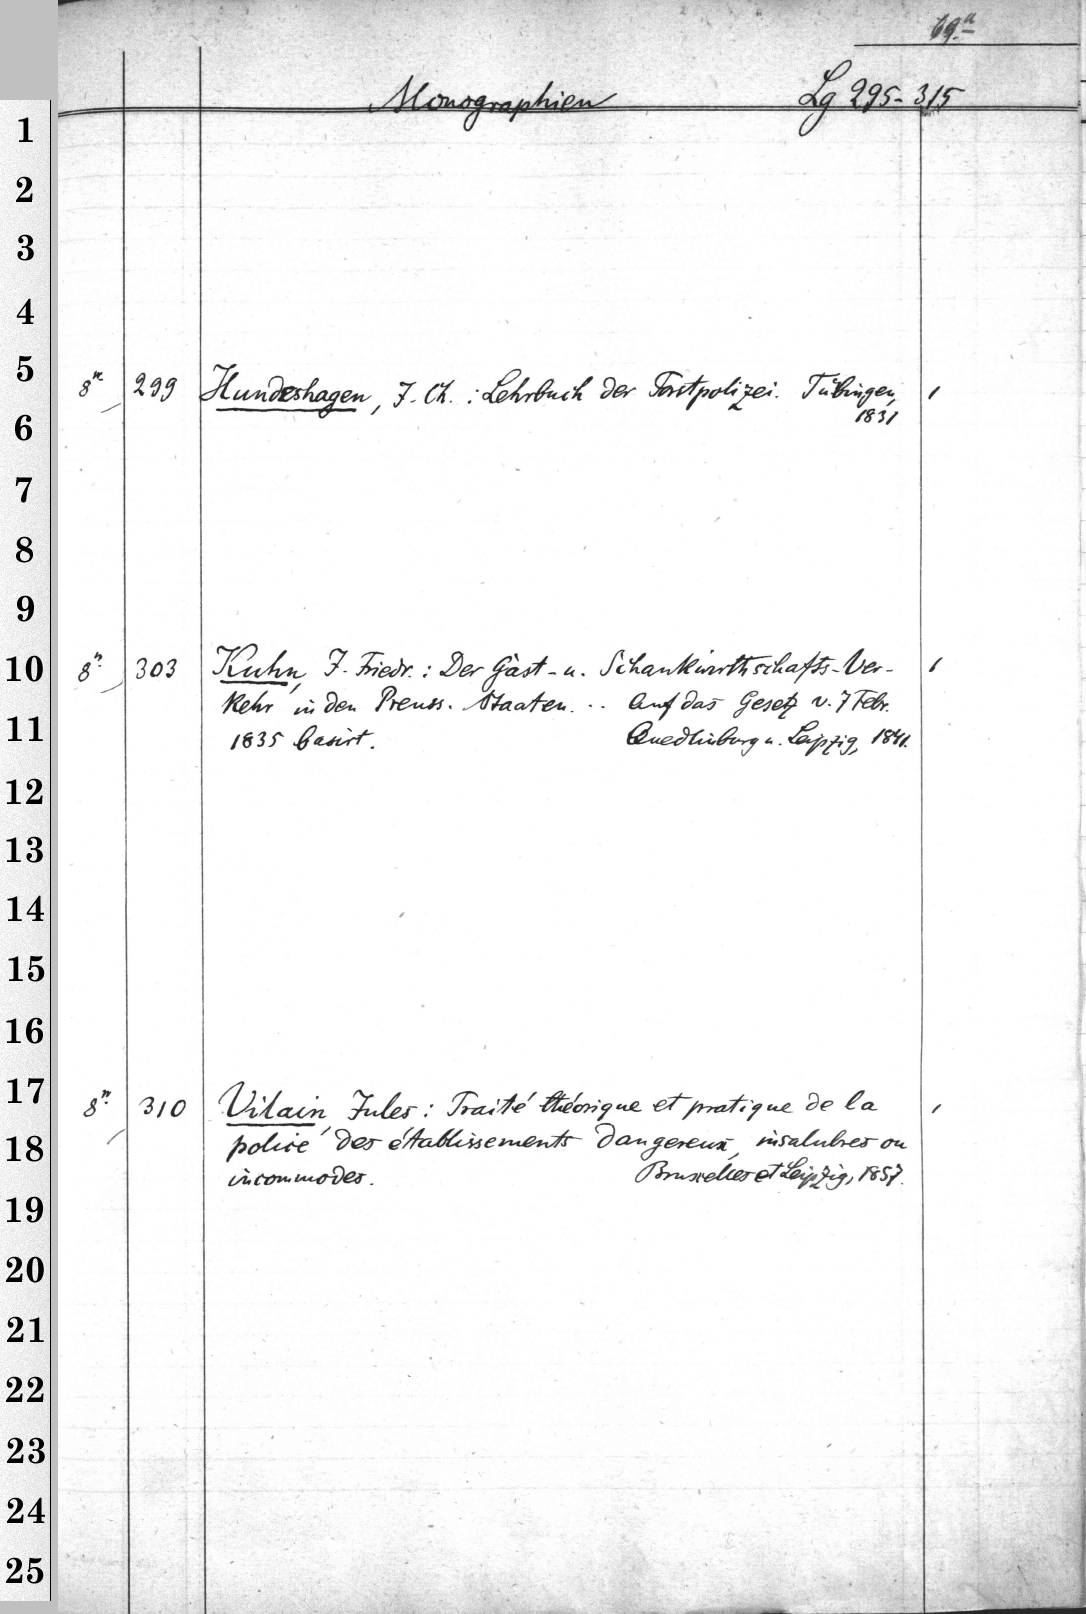 69.a
Monographien Lg 295-315
1
2
3
4
5
8n 299 Hundeshagen, J. Ch. : Lehrbuch der Forstpolizei. Tübingen, 1
1831
6
7
8
9
10
8n. 303 Kuhn, J. Friedr. : Der Gast- u. Schankwirthschafts-Ver- 1
kehr in den Preuss. Staaten. .. Auf das Gesetz v. 7 Febr.
11
1835 basirt. Quedlinburg u. Leipzig, 1841.
12
13
14
15
16
17
8n. 310 Vilain, Jules : Traité théorique et pratique de la 1
18
police des établissements dangereux, insalubres ou
incommodes. Bruxelles et Leipzig, 1857.
19
20
21
22
23
24
25